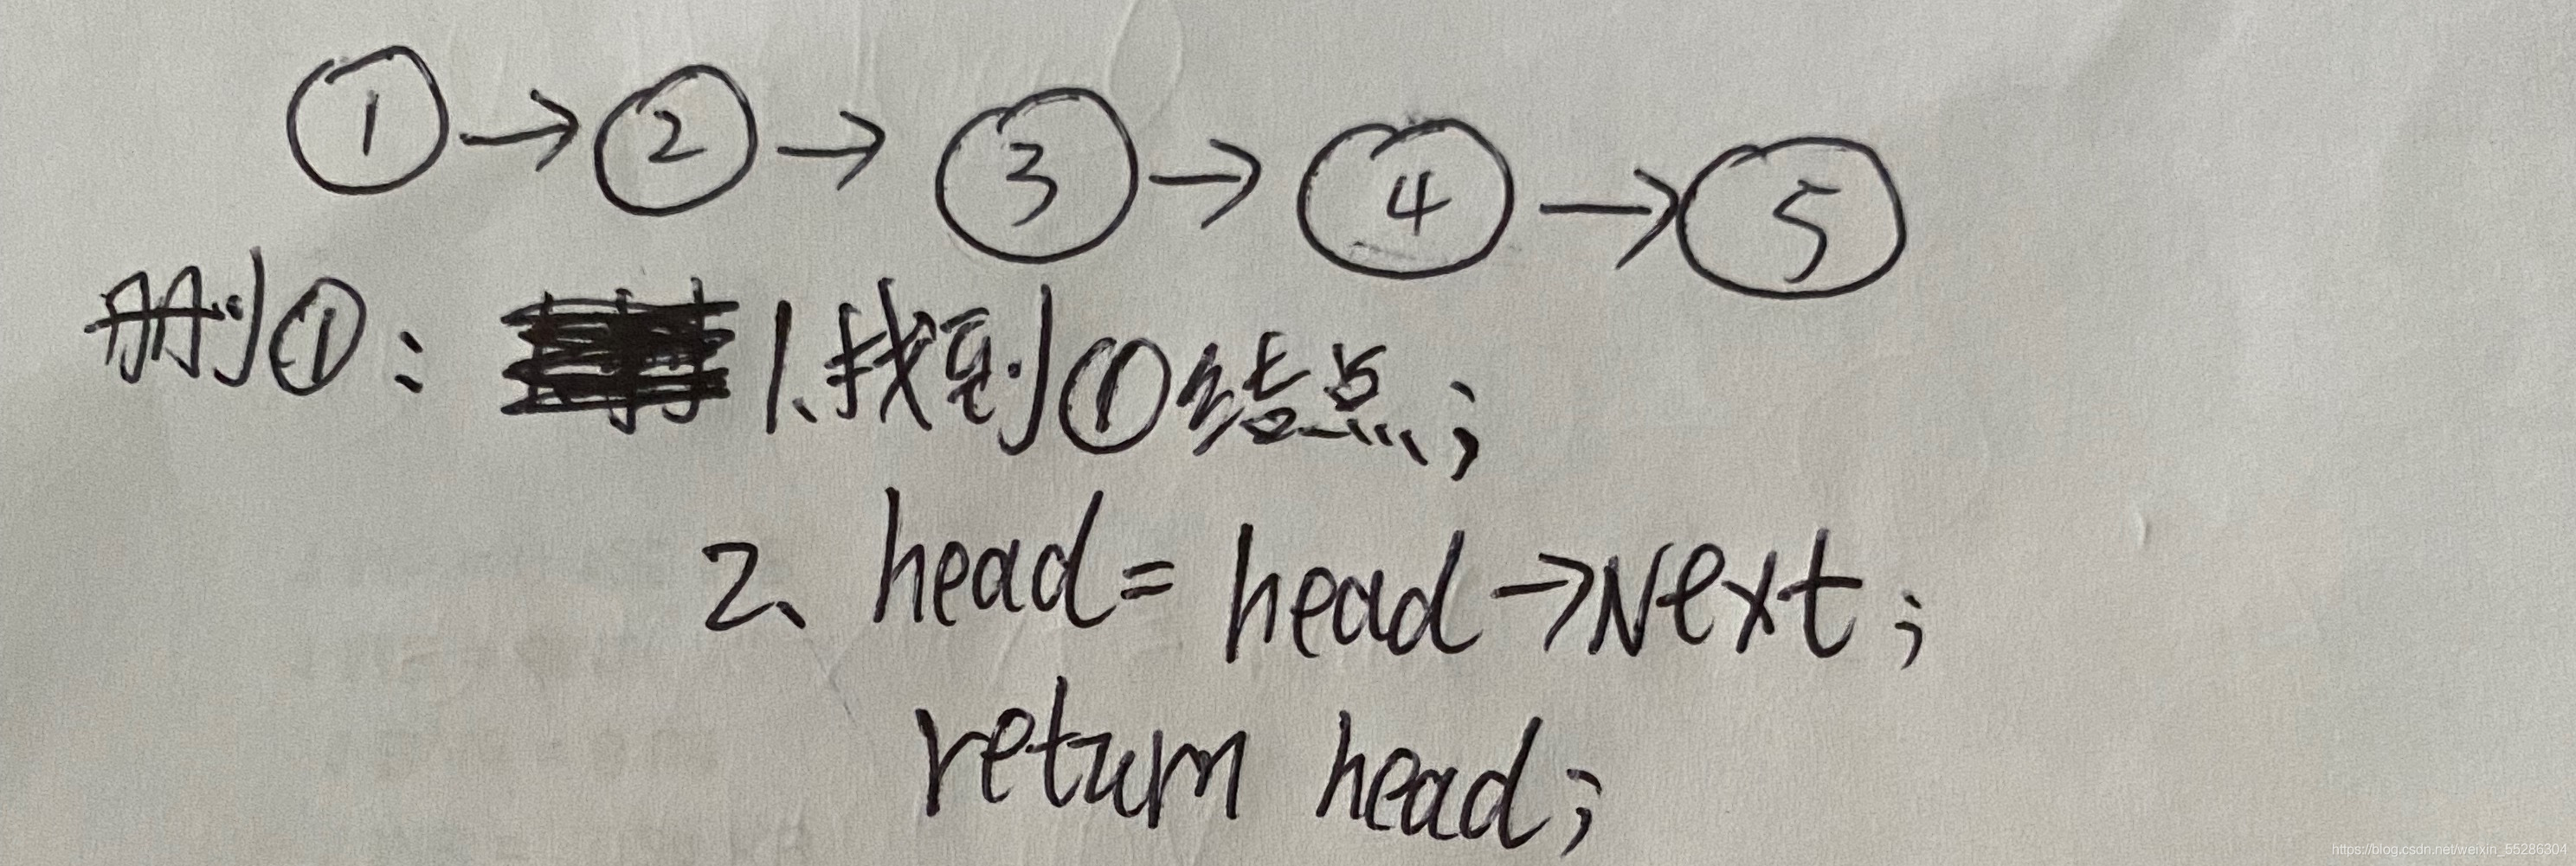 ① → ② → ③ → ④ → ⑤
删①: 1、找到①结点;
2、head = head → Next;
return head;
https://blog.csdn.net/weixin_55286304